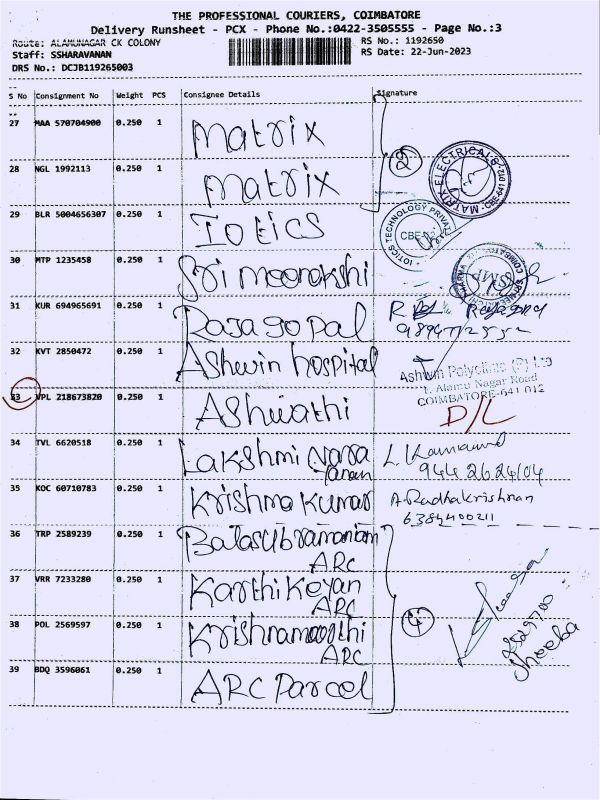 THE PROFESSIONAL COURIERS, COIMBATORE
Delivery Runsheet - PCX - Phone No.:0422-3505555 - Page No.:3
Route: ALAMUNAGAR CK COLONY RS No.: 1192650
Staff: SSHARAVANAN RS Date: 22-Jun-2023
DRS No.: DCJB119265003
S No Consignment No Weight PCS Consignee Details Signature
27 MAA 570704900 0.250 1 Matrix
28 NGL 1992113 0.250 1 Matrix
2 MATRIX ELECTRICALS
29 BLR 5004656307 0.250 1 IOtiCS
IOTICS TECHNOLOGY PRIVAT
30 MTP 1235458 0.250 1 Sri meenakshi
31 KUR 694965691 0.250 1 Rajagopal
32 KVT 2850472 0.250 1 Ashwin hospital
Ashwin Polyclinic (P) Ltd
1, Alamu Nagar Road
COIMBATORE-641 012
33 VPL 218673820 0.250 1 Ashwathi D/L
34 TVL 6620518 0.250 1 Lakshmi Nara
yanan
9442624104
35 KOC 60710783 0.250 1 Krishna Kumar A. Radhakrishnan
6384400211
36 TRP 2589239 0.250 1 Balasubramaniam
ARC
37 VRR 7233280 0.250 1 Karthikeyan
ARC
38 POL 2569597 0.250 1 Krishnamoorthi 4
ARC
Sheeba
39 BDQ 3596061 0.250 1 ARC Parcel